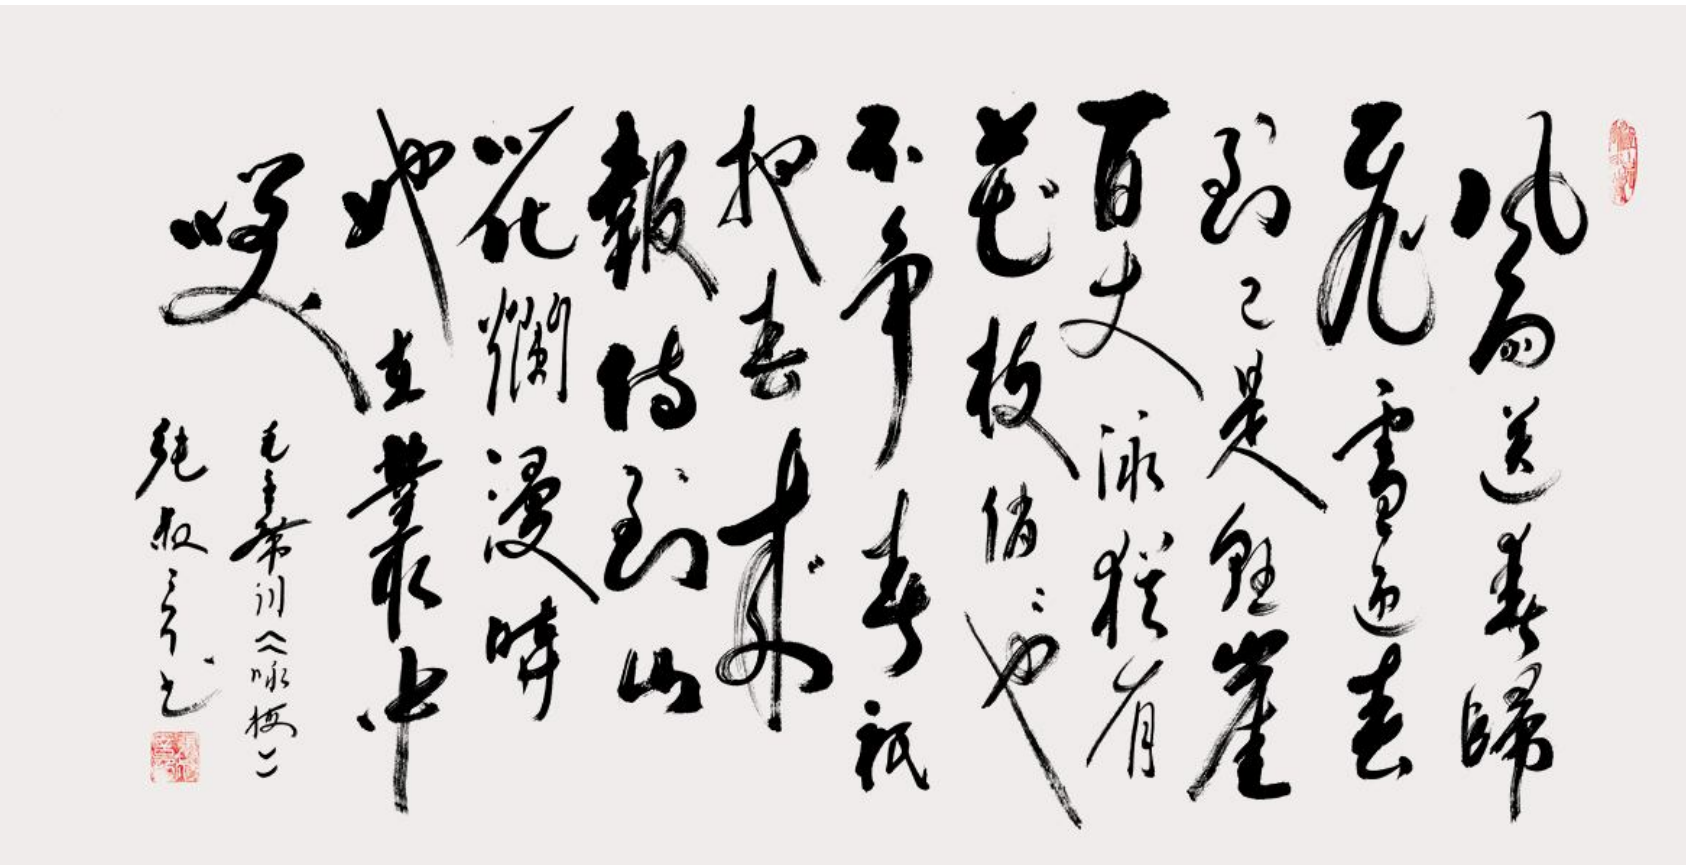 风雨送春歸
飛雪迎春
到已是懸崖
百丈冰猶有
花枝俏々也
不争春祇
把春来
報待到山
花爛漫時
她在叢中
笑
毛主席词《咏梅》
书